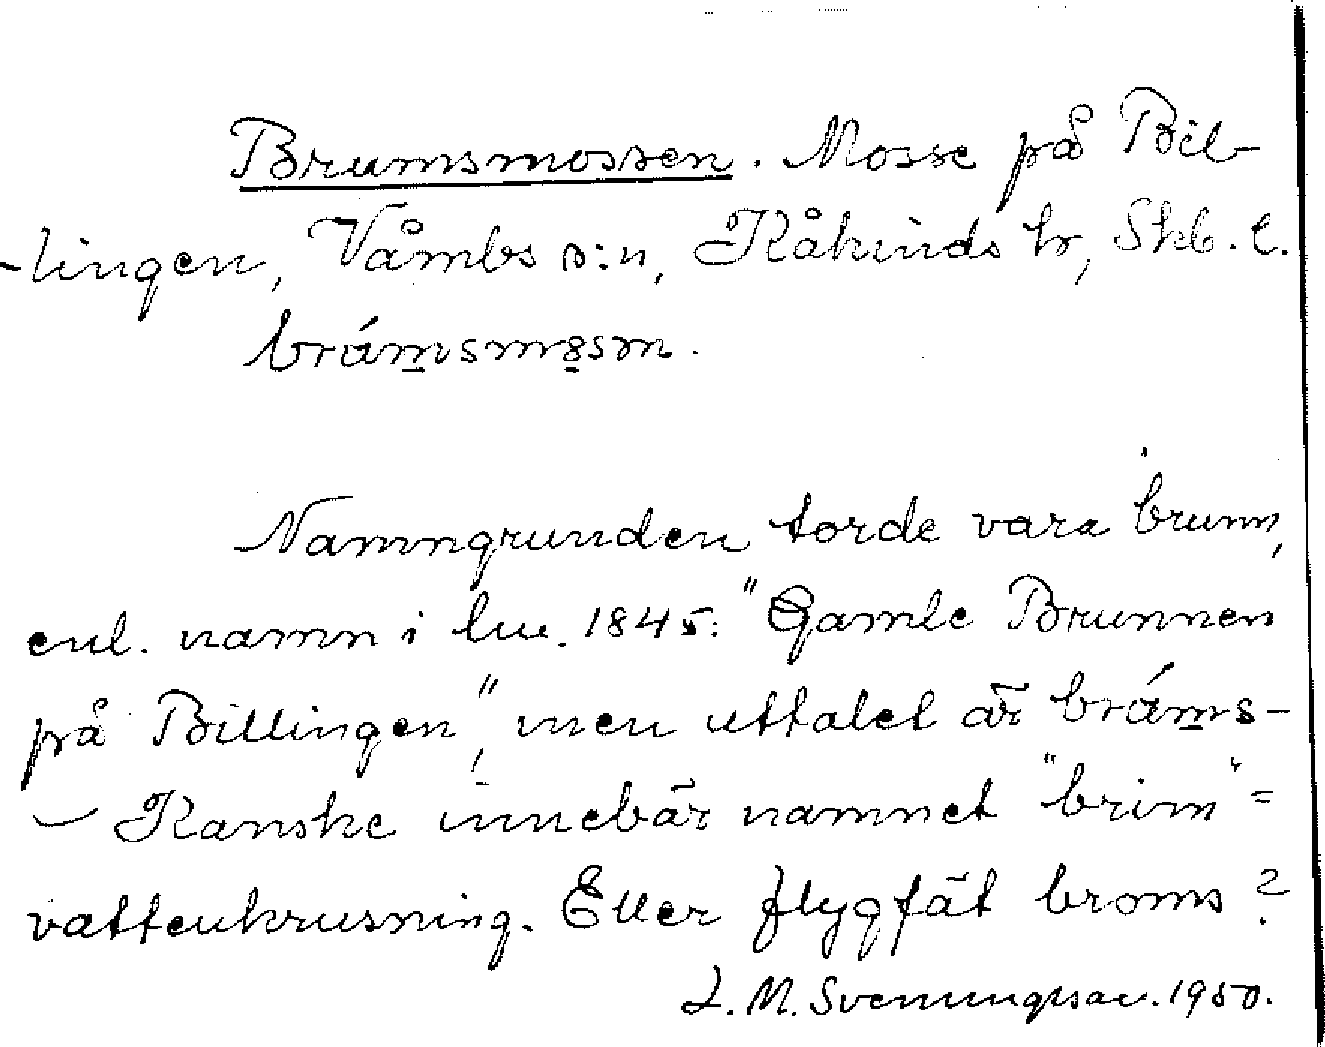 Brumsmossen. Mosse på Bil-
-lingen, Våmbs s:n, Kåkinds hr, Skb. l.
brámsmåsm.
Namngrunden torde vara brunn,
enl. namn i hu. 1845: "Gamle Brunnen
på Billingen", men uttalet är bráms-
- Kanske innebär namnet "brim" =
vattenkrusning. Eller flygfät broms?
L. M. Svenungsson. 1950.